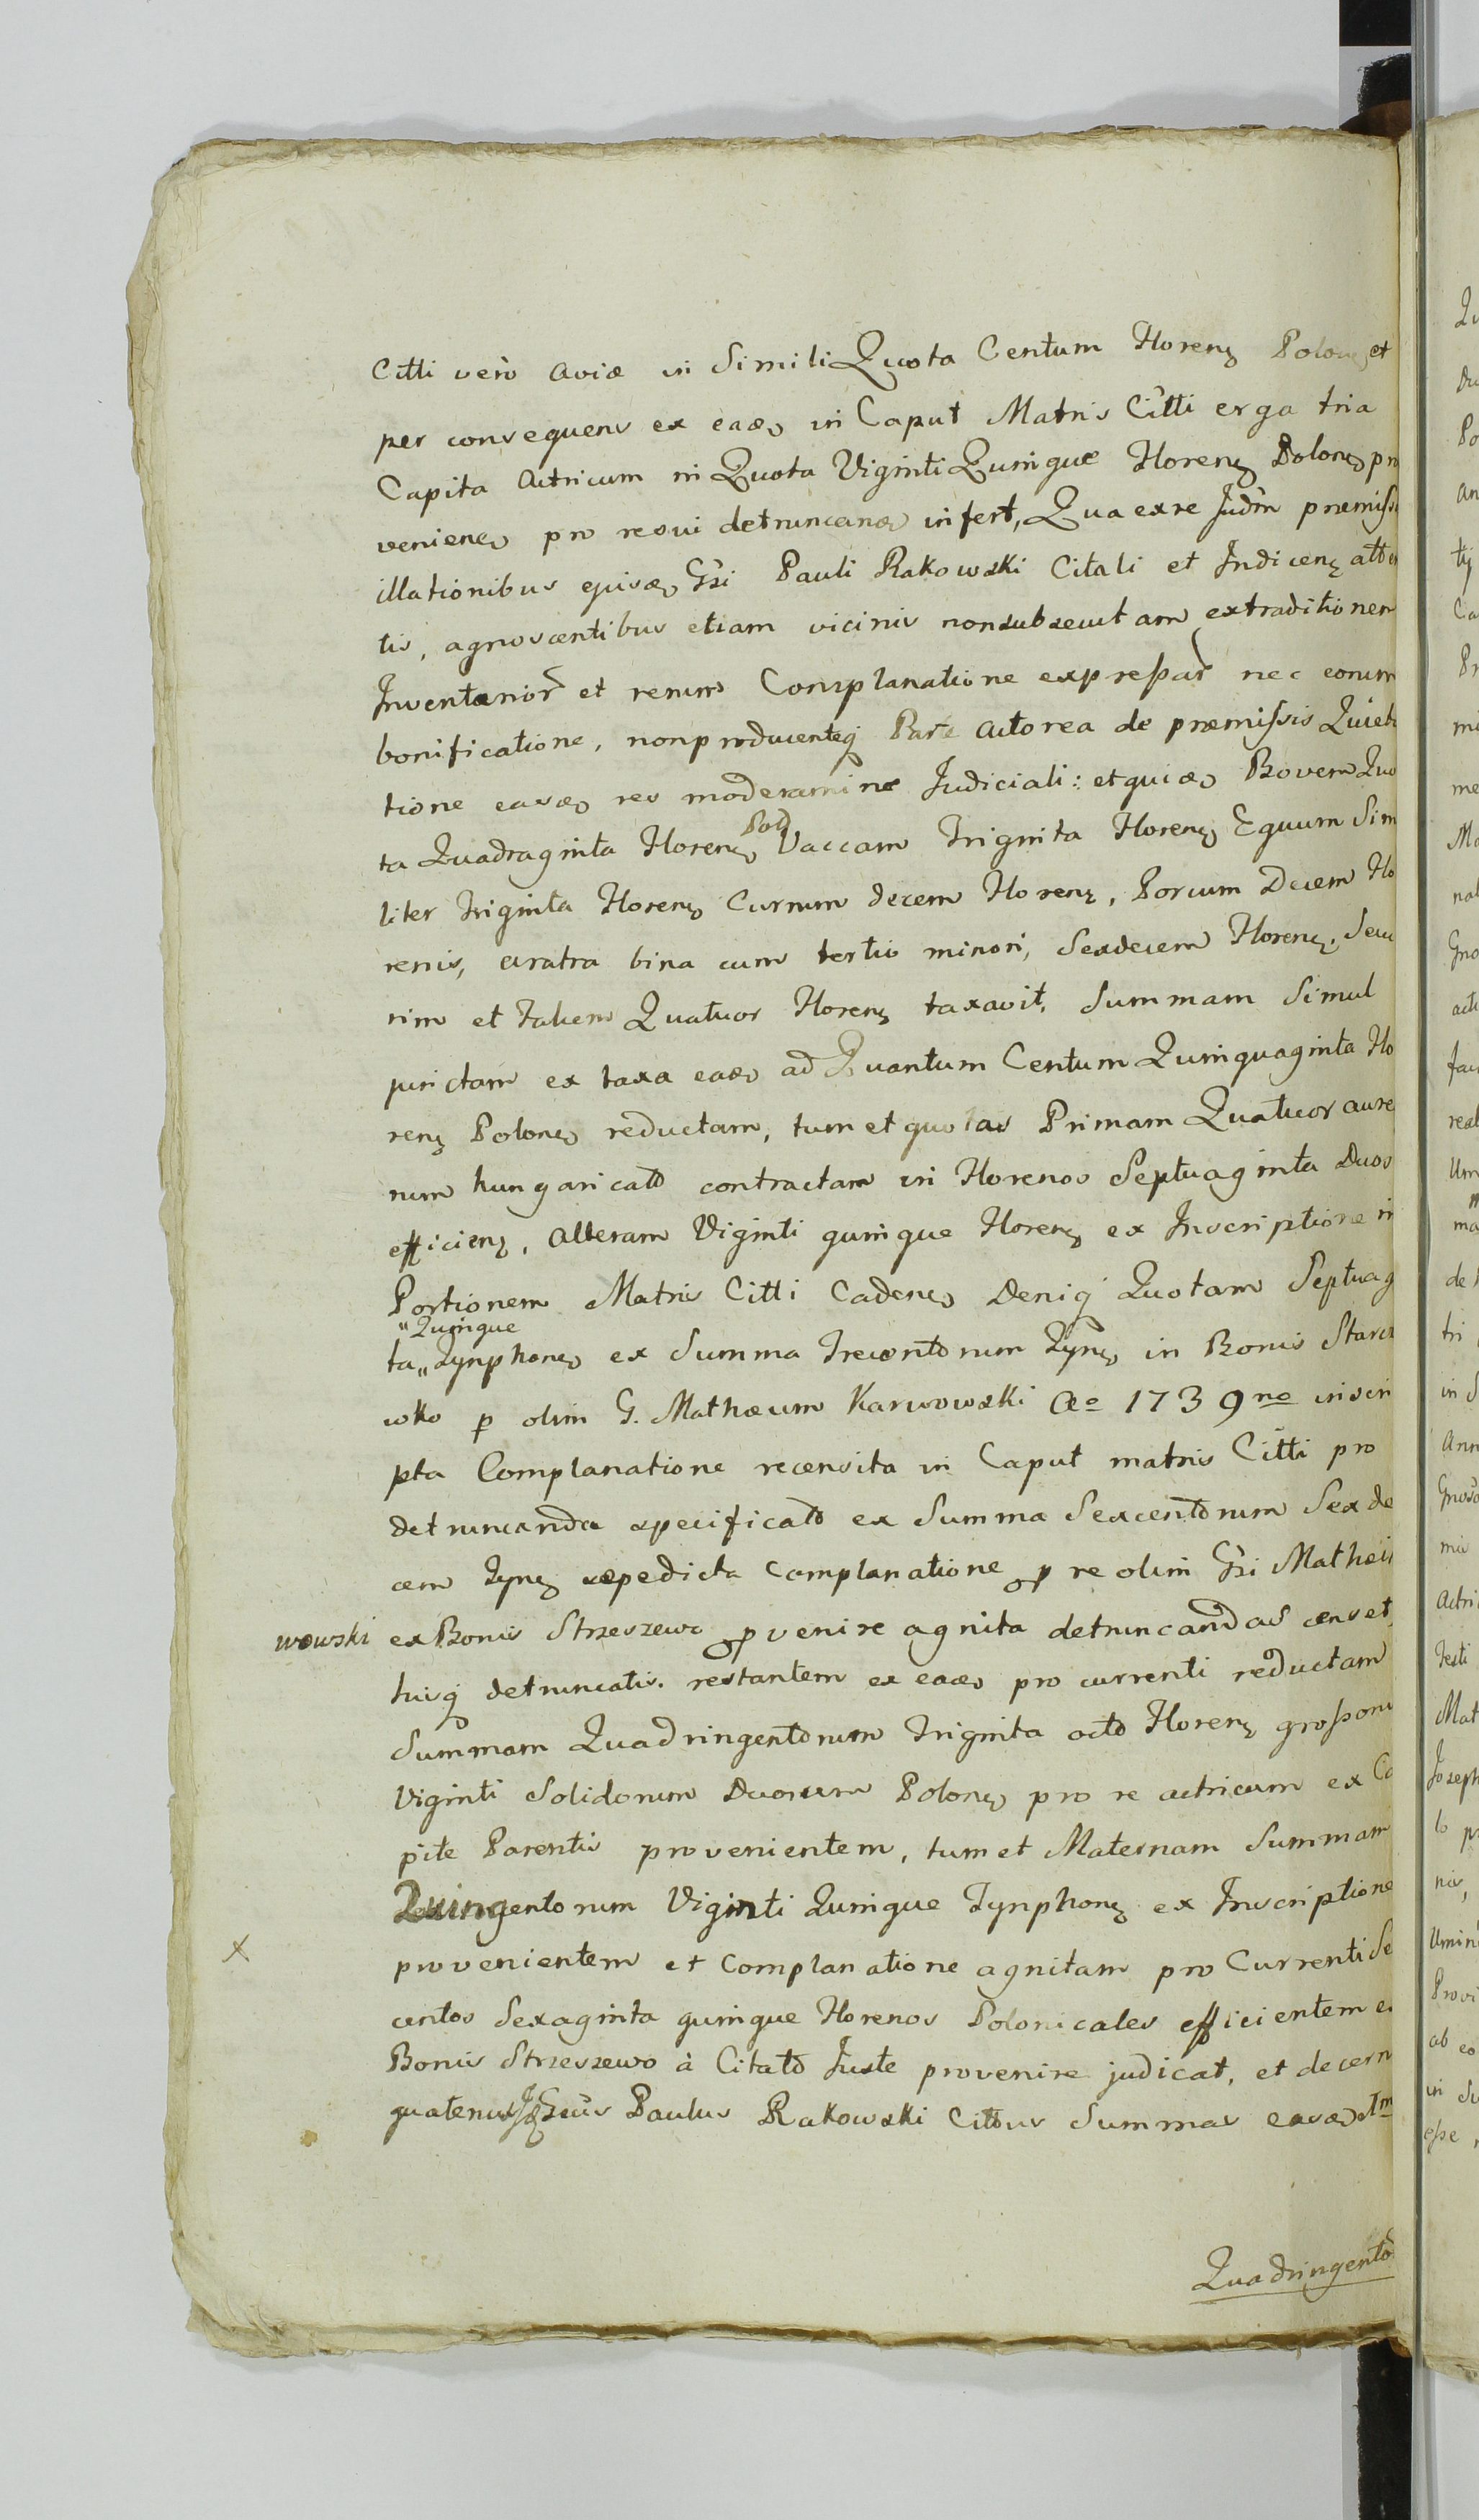 Citti verò aviæ in Simili Quota Centum Floren Polon et
per consequens ex eaæ in Caput Matris Citti erga tria
Capita Actricum in Quota Viginti Quinque Floren Polon pro
venien pro resvi detruncand infert, Qua ex re Judm præmissis
illationibus ejusd Gsi Pauli Rakowski Citati et Indicen
tis, agnoscentibus etiam vicinis non subsecutam extraditionem
Inventarior et rerum Complanatione expressar nec eorum
bonificatione, non producenteq Parte Actorea de præmissis Quieta
tione easd res moderamine Judiciali: et quid Bovem Quo
ta Quadraginta Floren Pol Vaccam Triginta Floren Equum Simi
liter triginta Floren Currum decem Floren, Porcum Decem Flo
renis, aratra bina cum tertio minori, Sexdecem Floren, Secu
rim et falcem Quatuor Floren taxavit, Summam Simul
junctam ex taxa ead ad Quantum Centum Quinquaginta Flo
ren Polon reductam, tum et quotas Primam Quatuor aureo
rum hungaricalo contractam in Florenos Septuaginta Duos
efficien, Alteram Viginti quinque Floren ex Inscriptione in
Portionem Matris Citti Caden Deniq Quotam Septuagin
"Quinque
ta" Tynphon ex Summa Trecentorum Tyn in Bonis Starcz
wko p olim G. Mathæum Karwowski Ao 1739no inscri
pta Complanatione recensita in Caput matris Citti pro
detruncanda specificato ex Summa Sexcentorum Sex de
cem Tyn sæpedicta Complanatione p re olim Gsi Mathæi
wowski ex Bonis Strzeszewo pvenire agnita detruncandas censet,
hisq detruncatis. restantem ex ead pro currenti reductam
Summam Quadringentorum Triginta octo Floren grossorum
Viginti Solidorum Duorum Polon pro re actricum ex Ca
pite Parentis provenientem, tum et Maternam Summam
Quingentorum Viginti Quinque Tynphon ex Inscriptione
X provenientem et Complanatione agnitam pro Currenti Se
centos Sexaginta quinque Florenos Polonicales efficientem ex
Bonis Strzeszewo à Citato Juste provenire judicat, et decern
quatenus Gsus Paulus Rakowski Cittus Summas easd
Quadringento